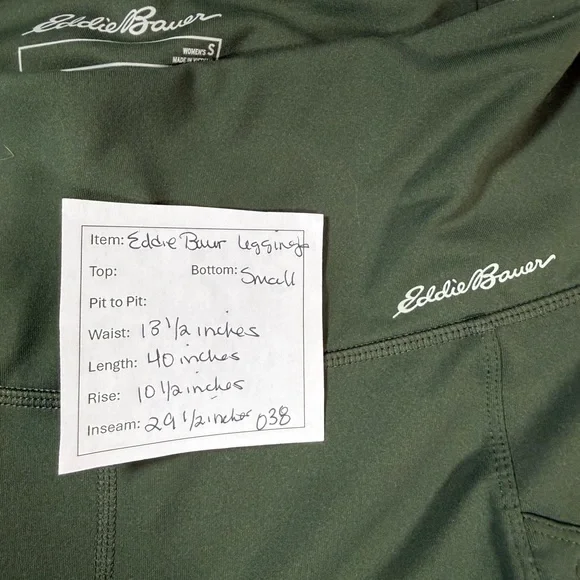 Eddie Bauer
WOMEN'S S
MADE IN
Item: Eddie Bauer Leggings
Top: Bottom: Small
Pit to Pit:
Waist: 13 1/2 inches
Length: 40 inches
Rise: 10 1/2 inches
Inseam: 29 1/2 inches 038
Eddie Bauer